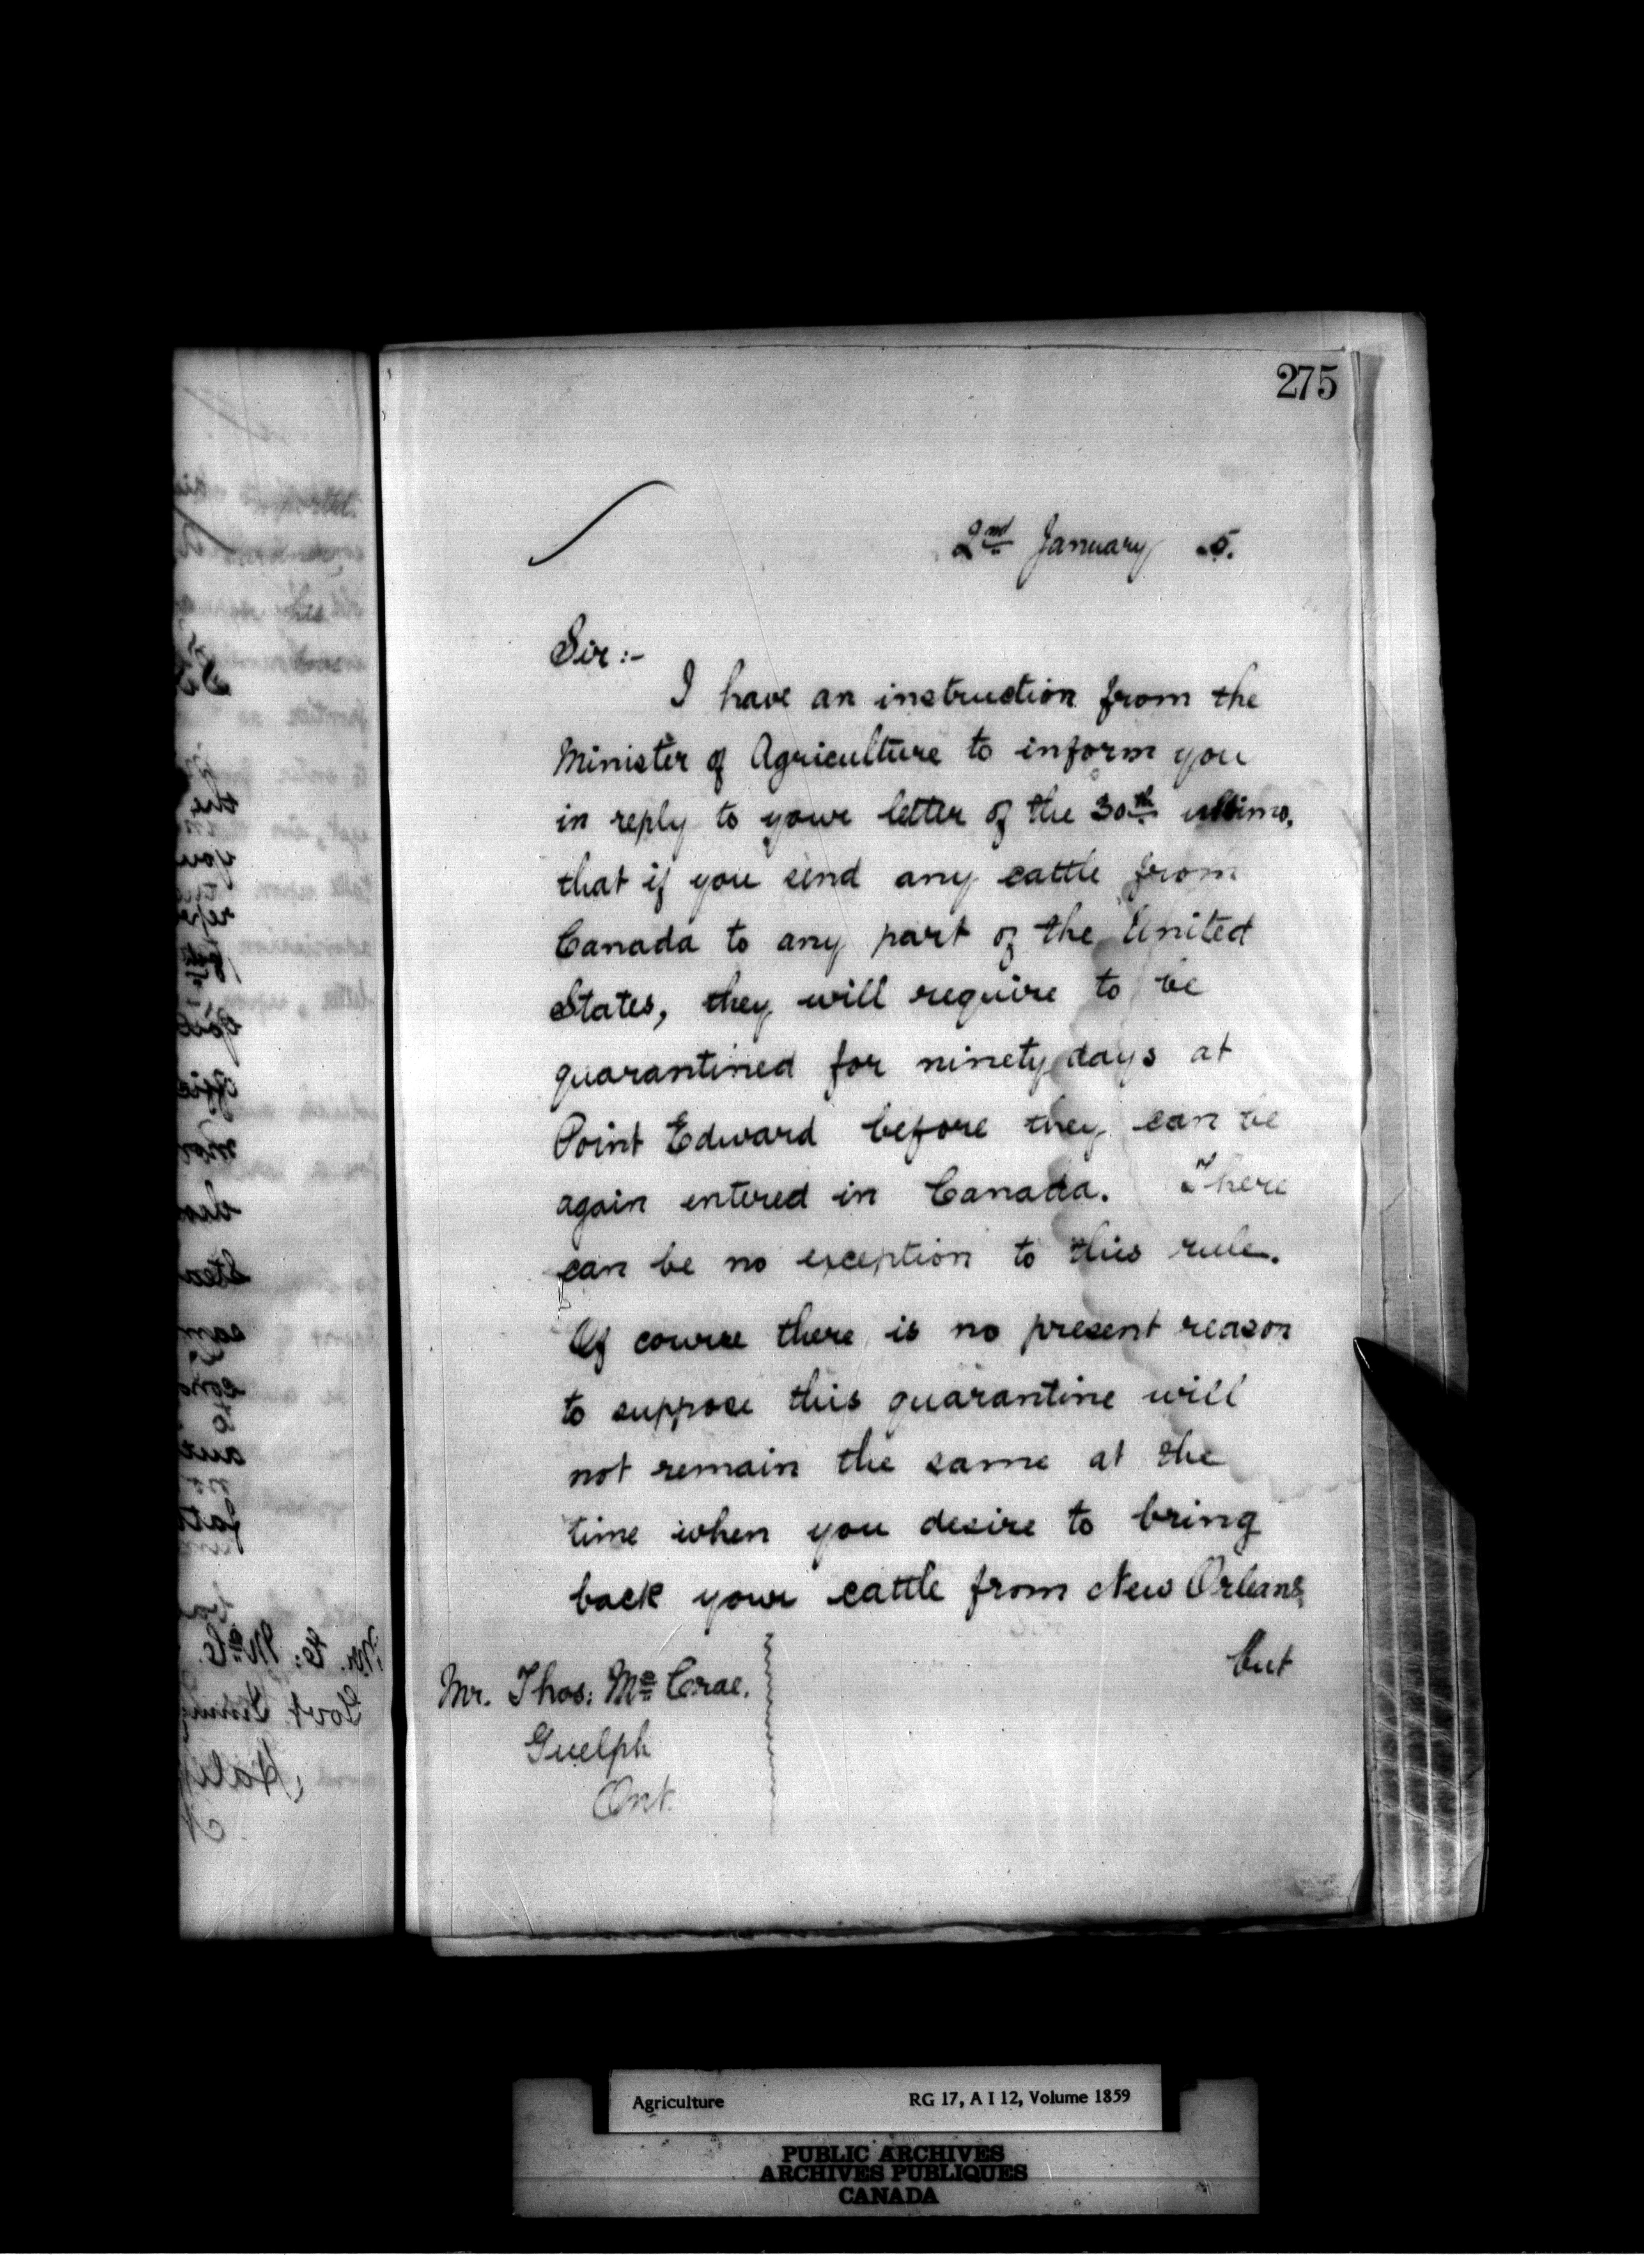 275
2nd January 5.
Sir:-
I have an instruction from the
Minister of Agriculture to inform you
in reply to your letter of the 30th ultimo,
that if you send any cattle from
Canada to any part of the United
States, they will require to be
quarantined for ninety days at
Point Edward before they can be
again entered in Canada. There
can be no exception to this rule.
Of course there is no present reason
to suppose this quarantine will
not remain the same at the
time when you desire to bring
back your cattle from New Orleans,
but
Mr. Thos: Mc Crae.
Guelph
Ont.
Agriculture RG 17, A I 12, Volume 1859
PUBLIC ARCHIVES
ARCHIVES PUBLIQUES
CANADA